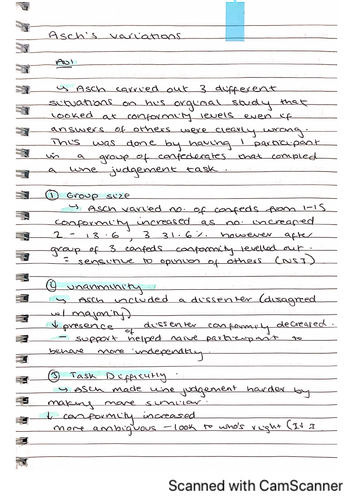 Asch's variations
AO1
↳ Asch carried out 3 different
situations on his orginal study that
looked at conformity levels even if
answers of others were clearly wrong.
This was done by having 1 participant
in a group of confederates that completed
a line judgement task.
① Group size
↳ Asch varied no. of confeds from 1-15
conformity increased as no. increased
2 = 13.6, 3 31.6% however after
group of 3 confeds conformity levelled out.
= sensitive to opinion of others (NSI)
② unanimity
↳ Asch included a dissenter (disagreed
w/ majority)
↓ presence of dissenter conformity decreased.
- support helped naive participant to
behave more independently.
③ Task Difficulty.
↳ Asch made line judgement harder by
making more similar.
↓ conformity increased
more ambiguous - look to who's right (ISI
Scanned with CamScanner